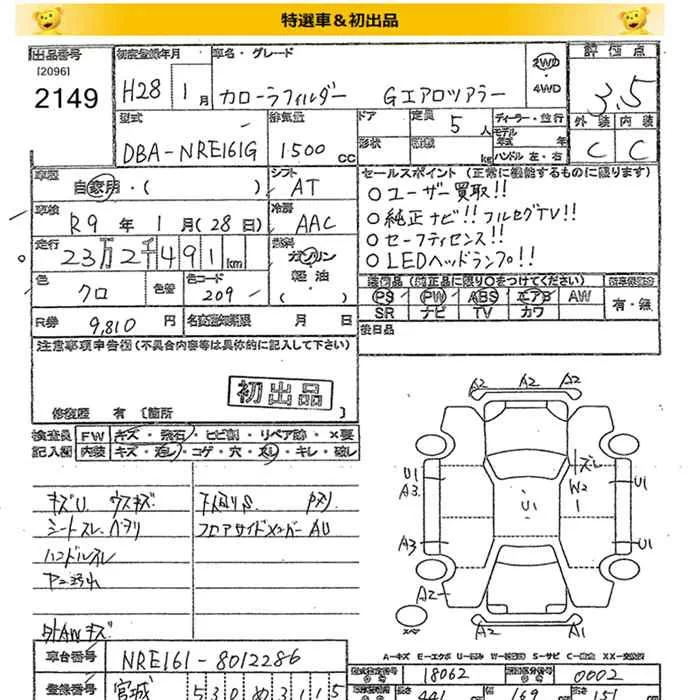 特選車&初出品
出品番号
[2096]
2149
初度登録年月
H28 1月
車名・グレード
カローラフィルダー Gエアロツアラー
2WD
・
4WD
評価点
3.5
外装 内装
C C
型式
DBA-NRE161G
排気量
1500 CC
ドア
形状
定員 5人
ディーラー・並行
モデル
年式 年
ハンドル 左・右
車歴
自家用・( )
シフト
AT
車検
R9年 1月(28日)
冷房
AAC
走行
23万2千491km
燃料
ガソリン
軽油
・( )
色
クロ
色替
色コード
209
R券 9,810円
名変期限 月 日
セールスポイント(正常に機能するものに限ります)
○ユーザー買取!!
○純正ナビ!!フルセグTV!!
○セーフティセンス!!
○LEDヘッドランプ!!
装備品(純正品に限り○をつけてください)
PS PW ABS エアB AW
SR ナビ TV カワ
有・無
後日品
注意事項申告欄(不具合内容等は具体的に記入して下さい)
初出品
修復歴 有[箇所 ]
検査員 FW キズ・飛石・ヒビ割・リペア跡・×要
記入欄 内装 キズ・汚レ・コゲ・穴・スレ・キレ・破レ
キズU ウスキズ
シートスレ ヘタリ
フロアサイドメンバー AU
ハンドルスレ
ヤニ汚れ
外AWキズ
A2 A2 A2
U1
A3
ズレ
W2
1
U1
U1
A3
U1
A2
A2 A1
スペア
A-キズ E-エクボ U-凹み W-補修跡 S-サビ C-腐食 XX-交換済
車台番号 NRE161-8012286
型式指定番号 18062
類別区分番号 0002
登録番号 宮城 530 め 3115
長さ 441 幅 169 高さ 151